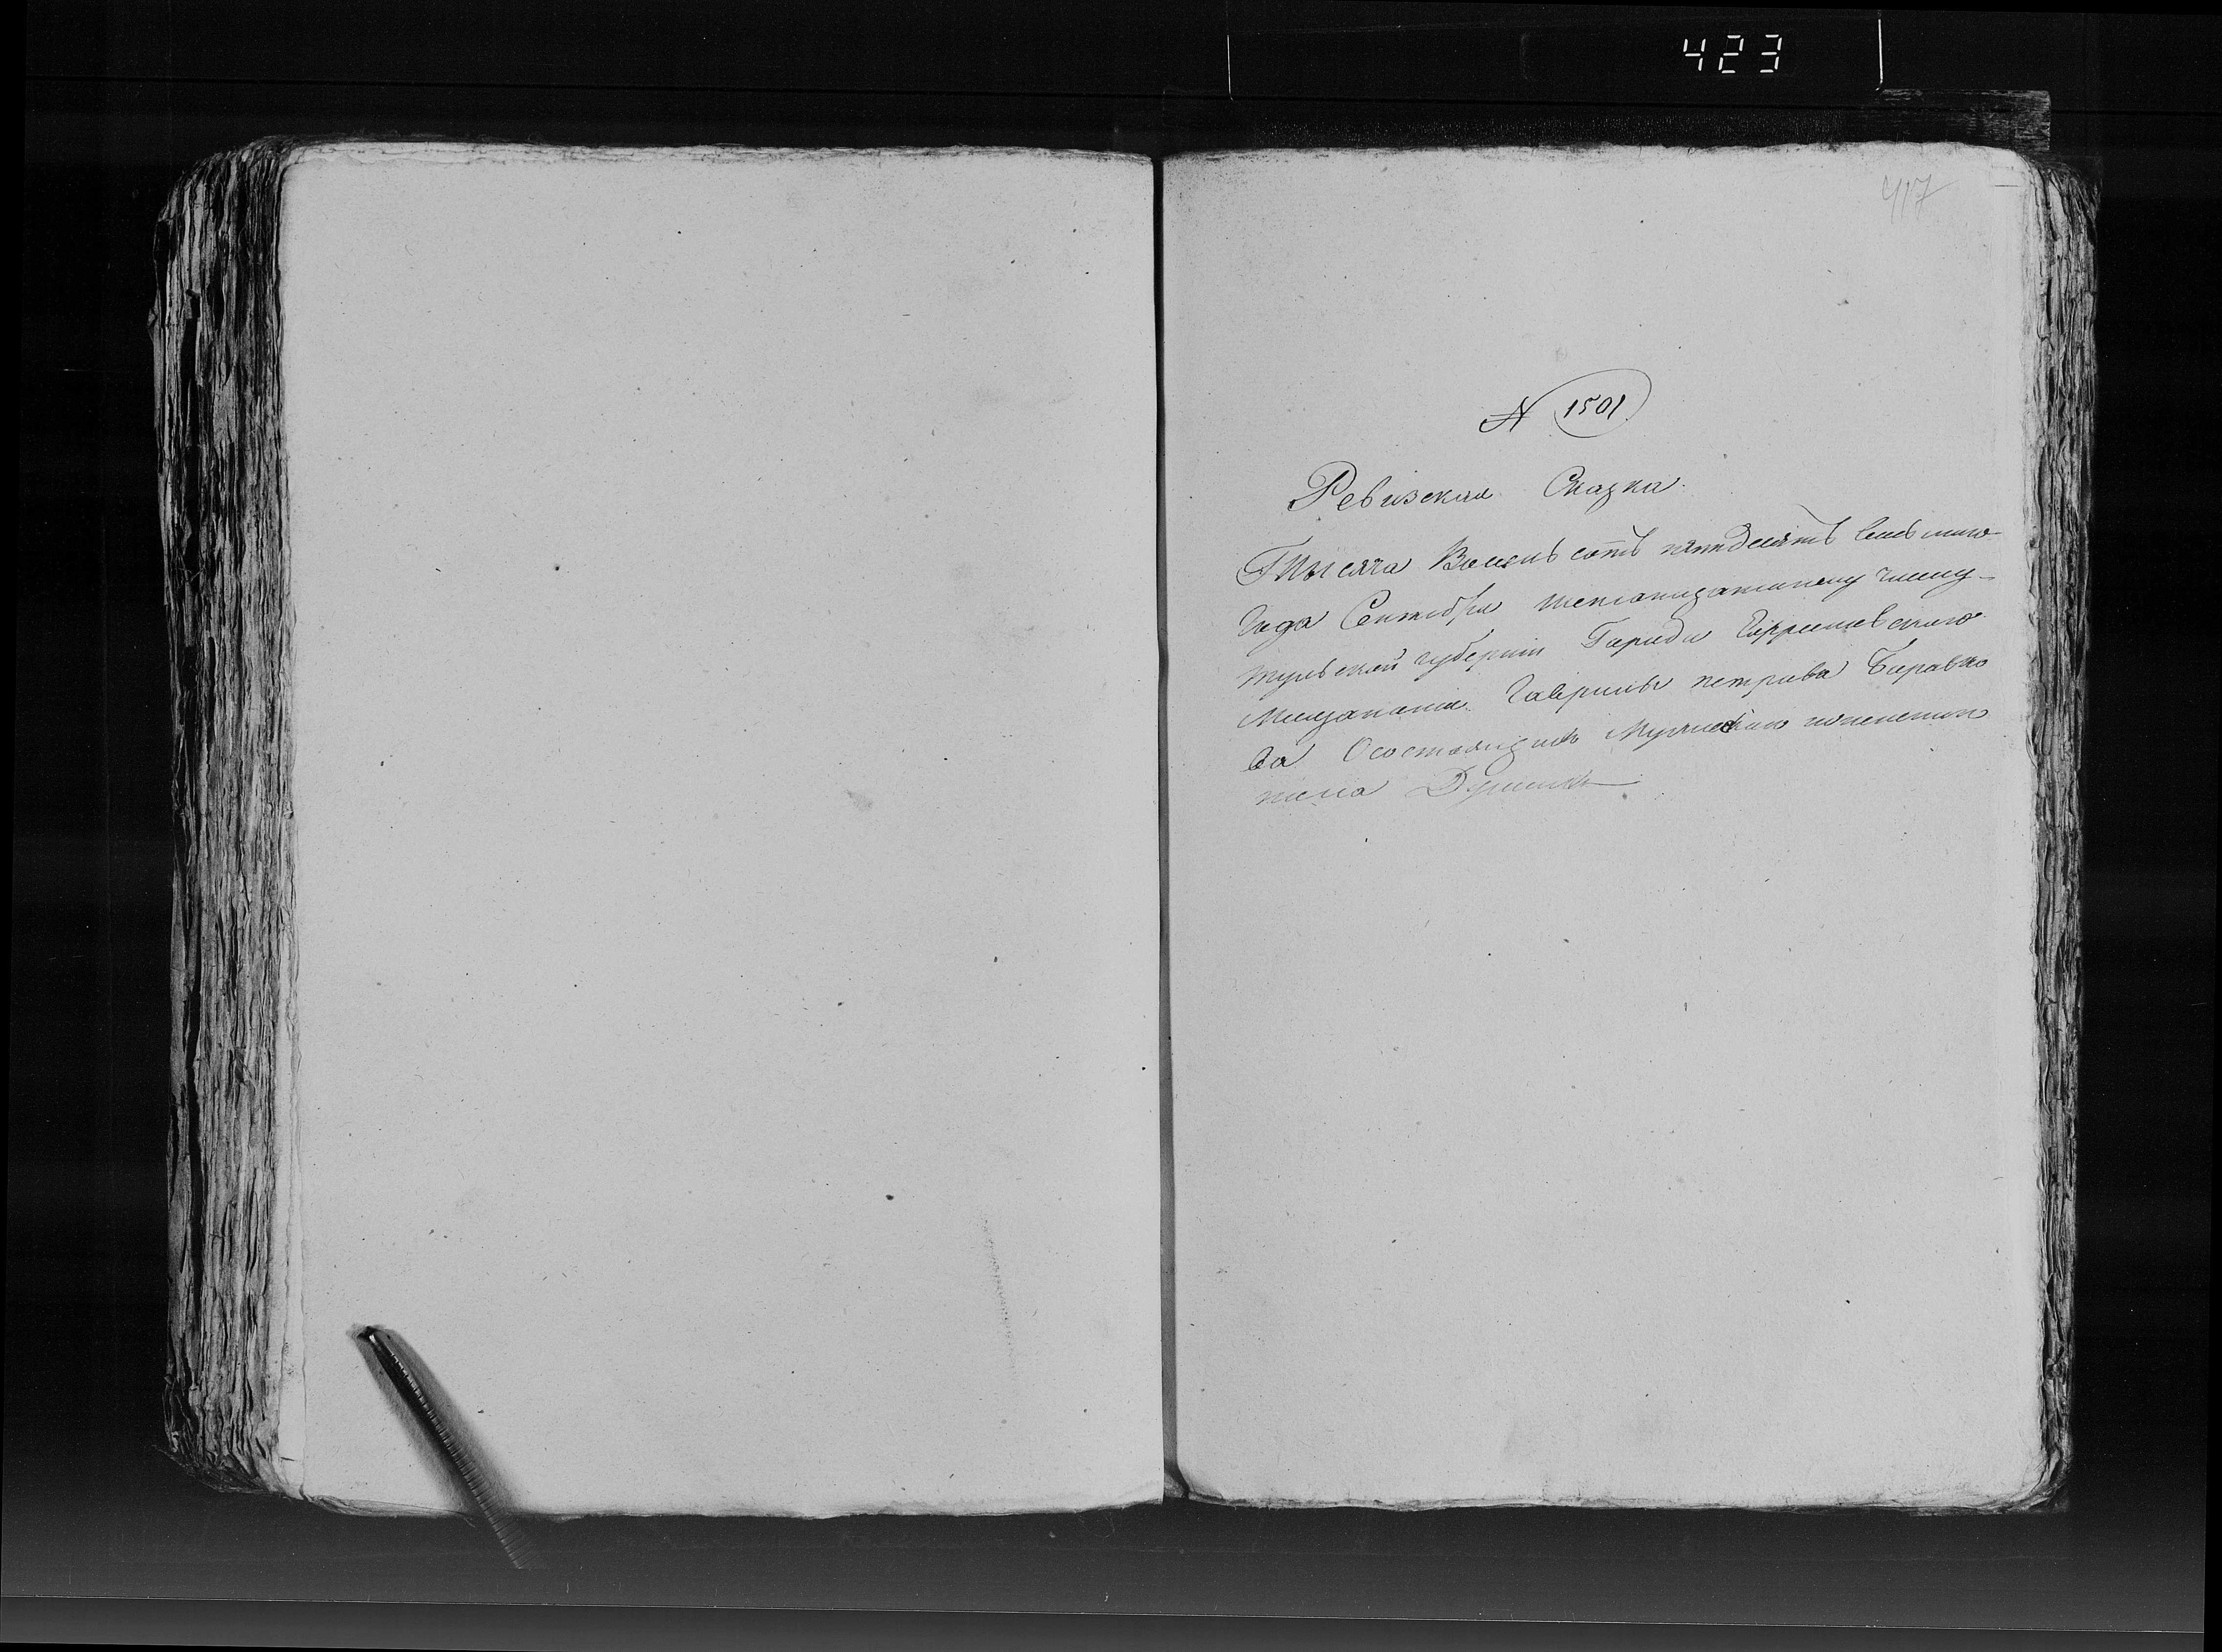 423
417
N 1501
Ревизская Сказка
Тысяча Восемь сотъ пятдесятъ восьмаго
Года Сентября шеснацатому числу
тульской губернии Города Ефремовскаго
Мещанина Гаврилы петрова Баравко
ва Осостоящихъ Мужескаго иженскаго
пола Душахъ